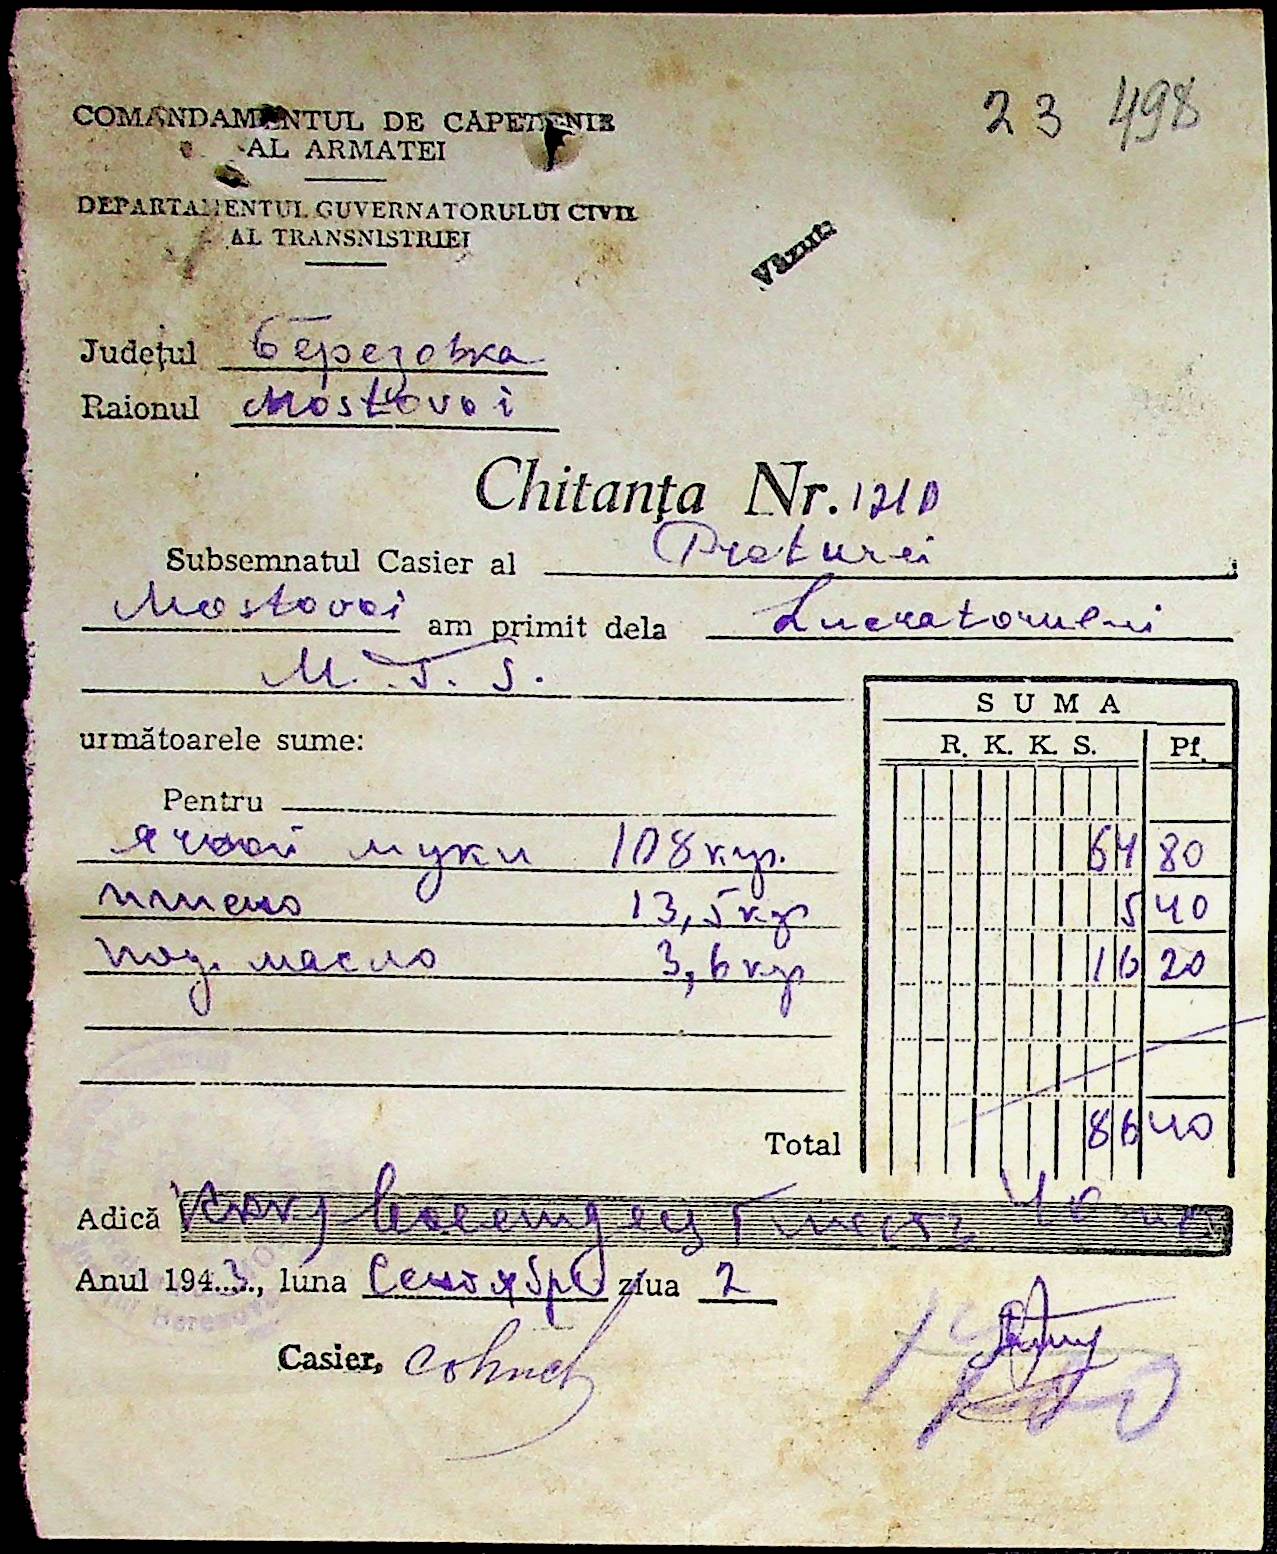 23 498
COMANDAMENTUL DE CAPETENIE
AL ARMATEI
DEPARTAMENTUL GUVERNATORULUI CIVIL
AL TRANSNISTRIEI
Văzut:
Județul Березовка
Raionul Mostovoi
Chitanța Nr. 1210
Subsemnatul Casier al Preturei
Mostovoi am primit dela Lucratorului
M. T. S.
SUMA
următoarele sume:
R. K. K. S. Pf.
Pentru
ячной муки 108 кгр. 64 80
пшено 13,5 кгр 5 40
под. масло 3,6 кгр 16 20
Total 86 40
Adică восемдесят шесть 40
Anul 1943., luna Сентября ziua 2
Casier,